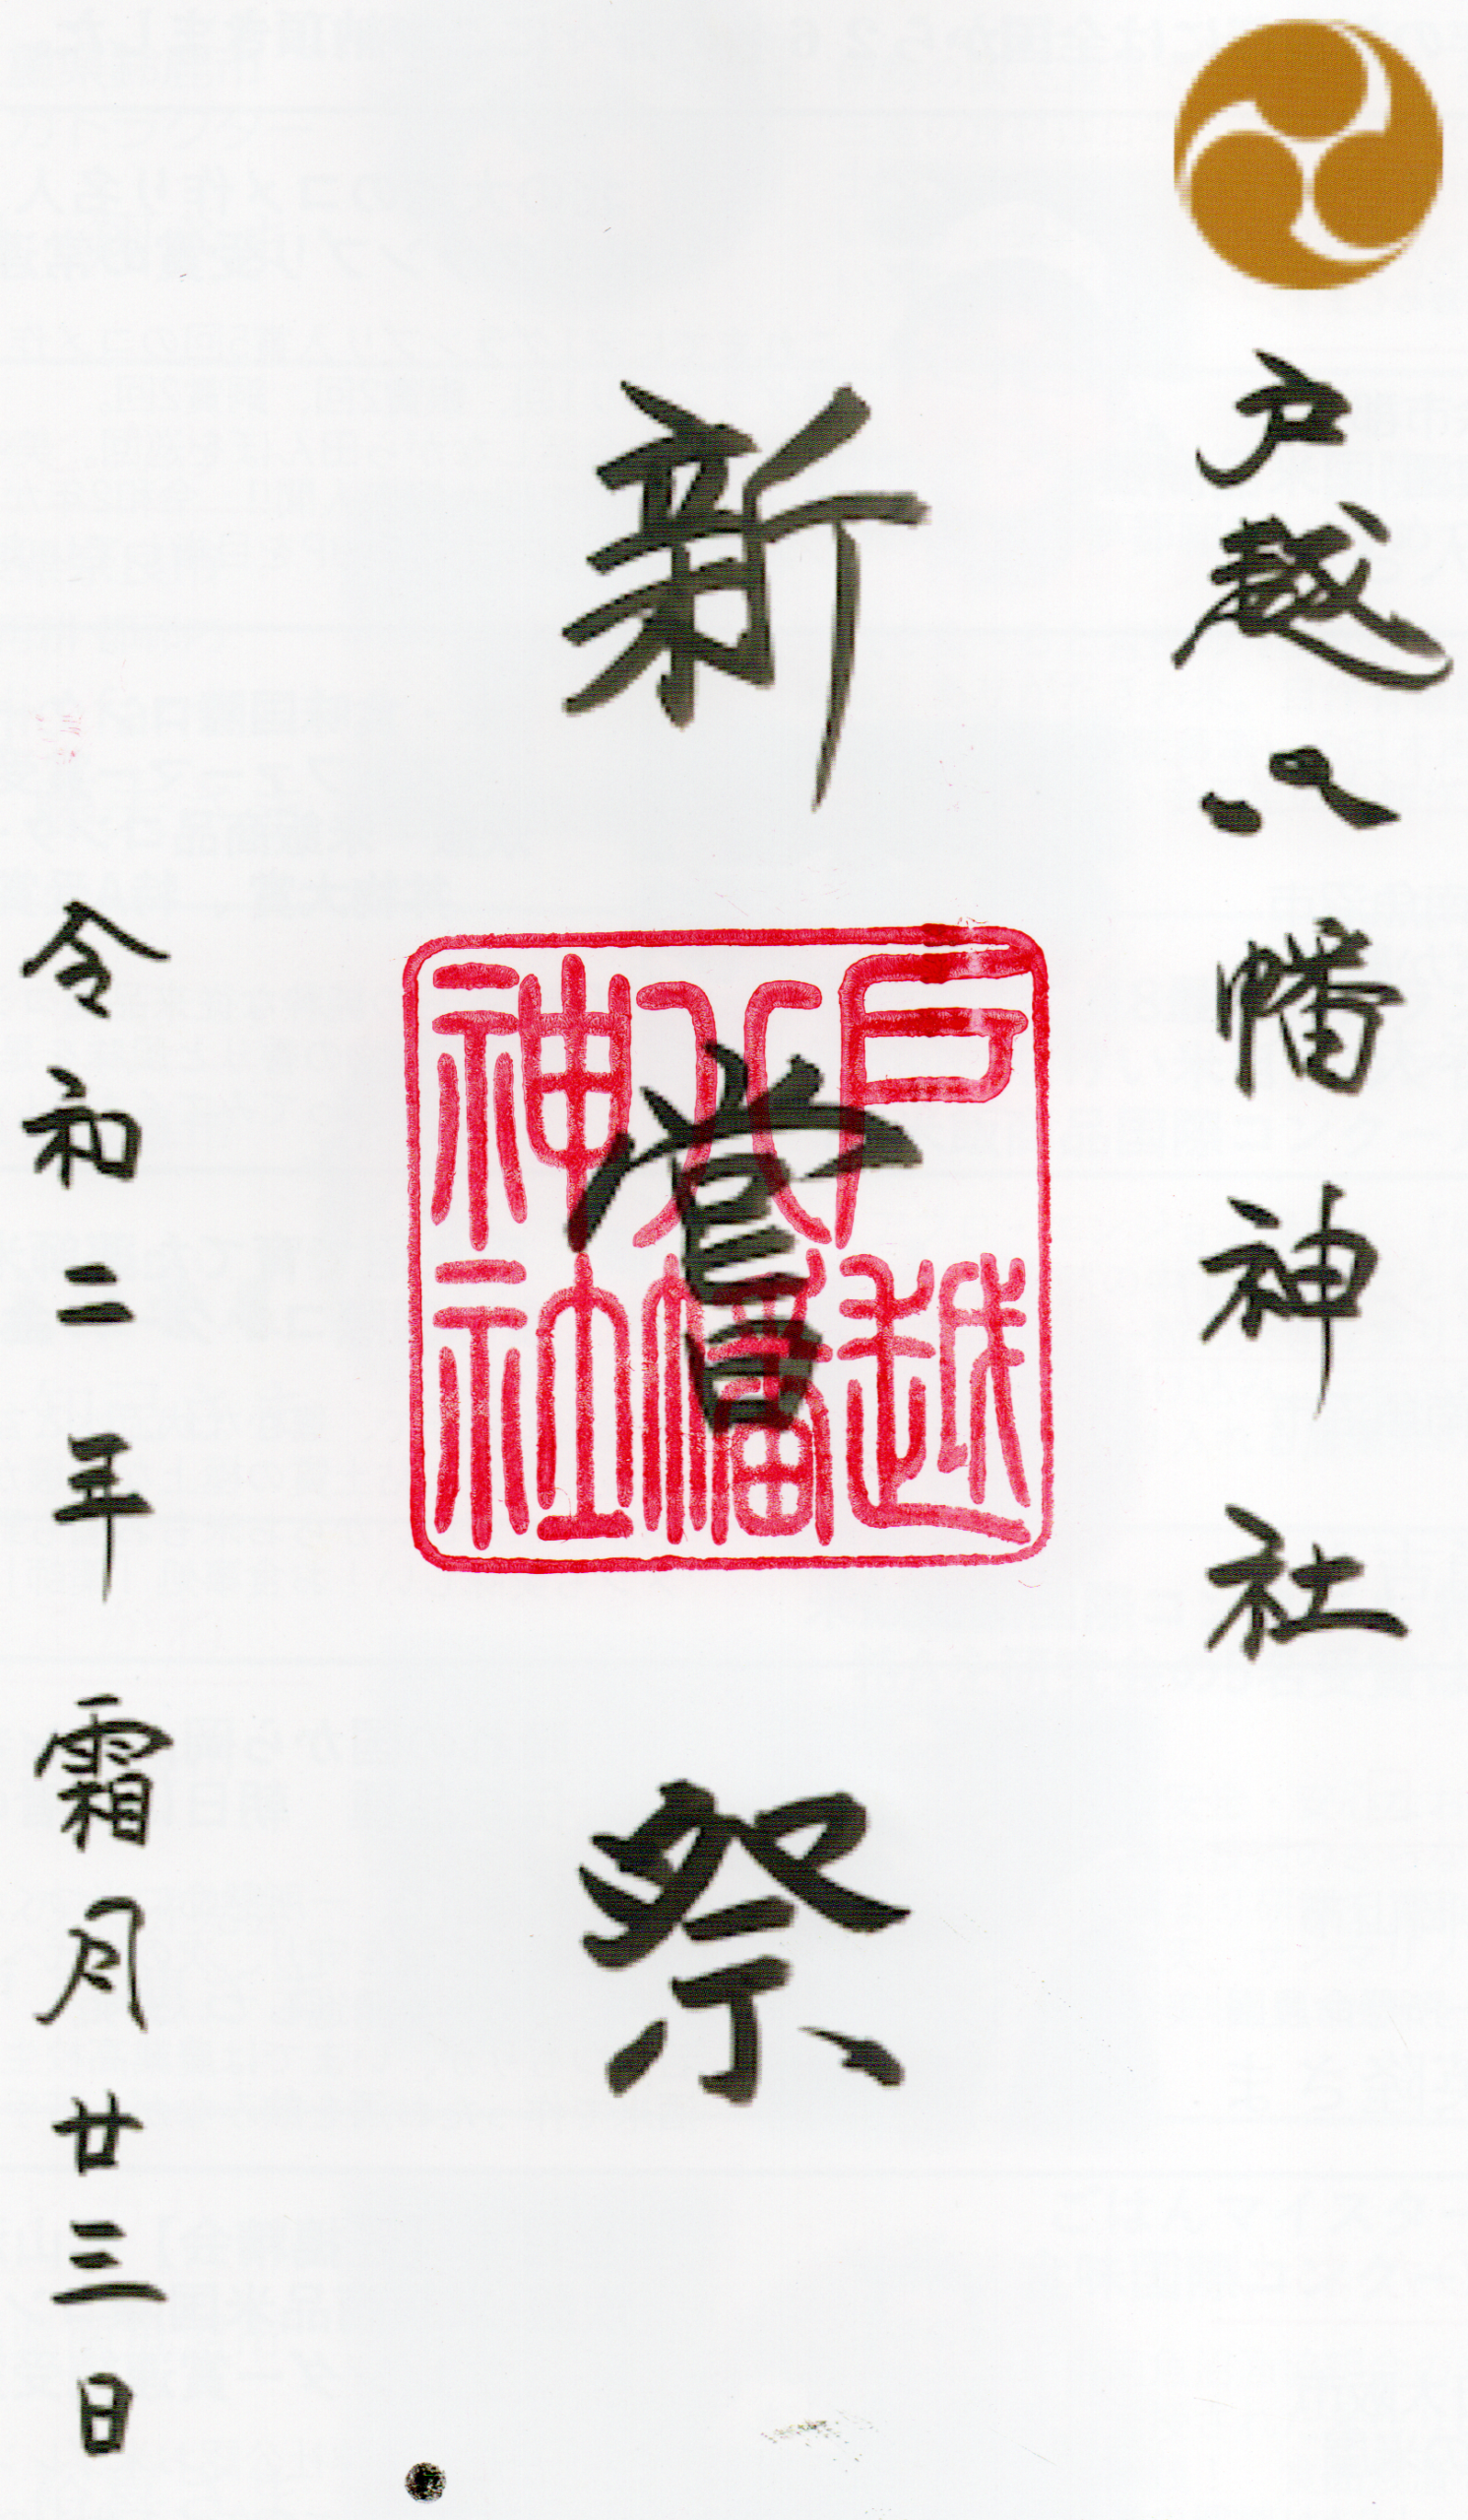 戸越八幡神社
新嘗祭
戸越
八幡
神社
令和二年霜月廿三日